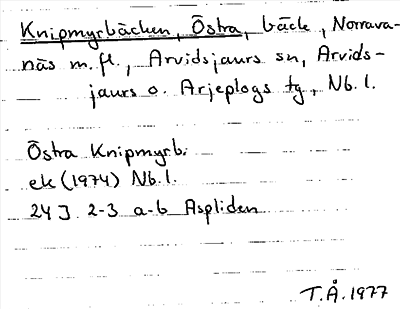 Knipmyrbäcken, Östra, bäck, Norrava-
näs m.fl., Arvidsjaurs sn, Arvids-
jaurs o. Arjeplogs tg, Nb. l.
Östra Knipmyrb.
ek (1974) Nb. l.
24 J 2-3 a-b Aspliden
T.Å. 1977